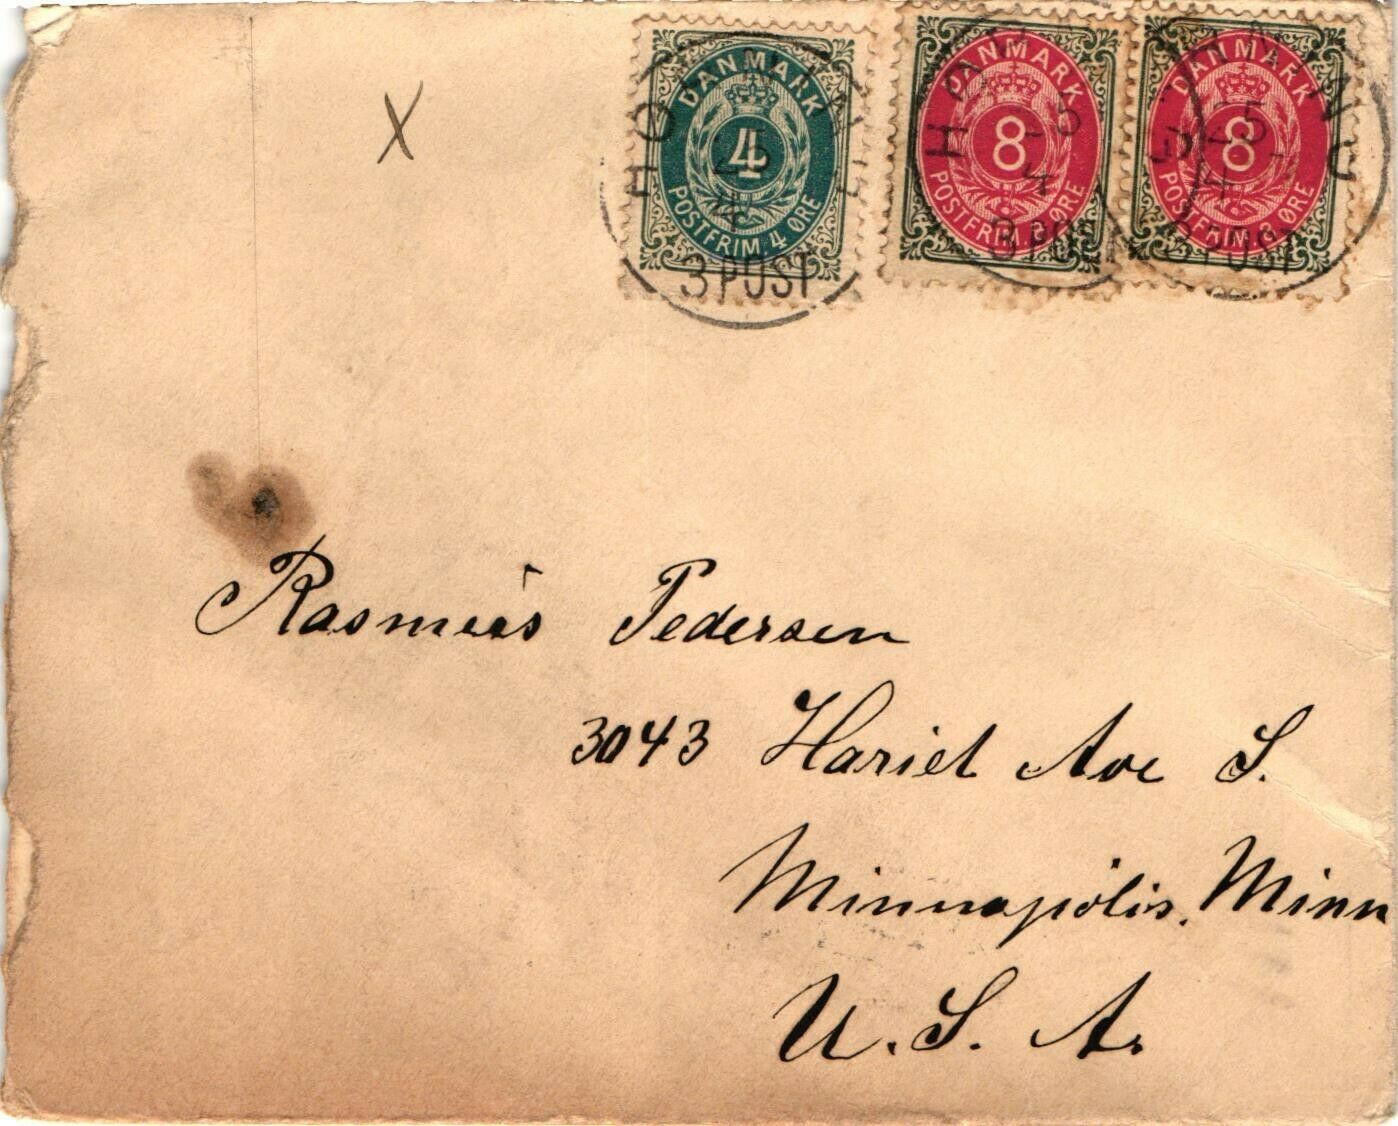 X
DANMARK
4
POSTFRIM. 4 ØRE
25
4
3 POST
DANMARK
8
POSTFRIM. 8 ØRE
25
4
3 POST
DANMARK
8
POSTFRIM. 8 ØRE
25
4
3 POST
Rasmus Pedersen
3043 Hariet Ave S.
Minnapolis, Minn
U. S. A.